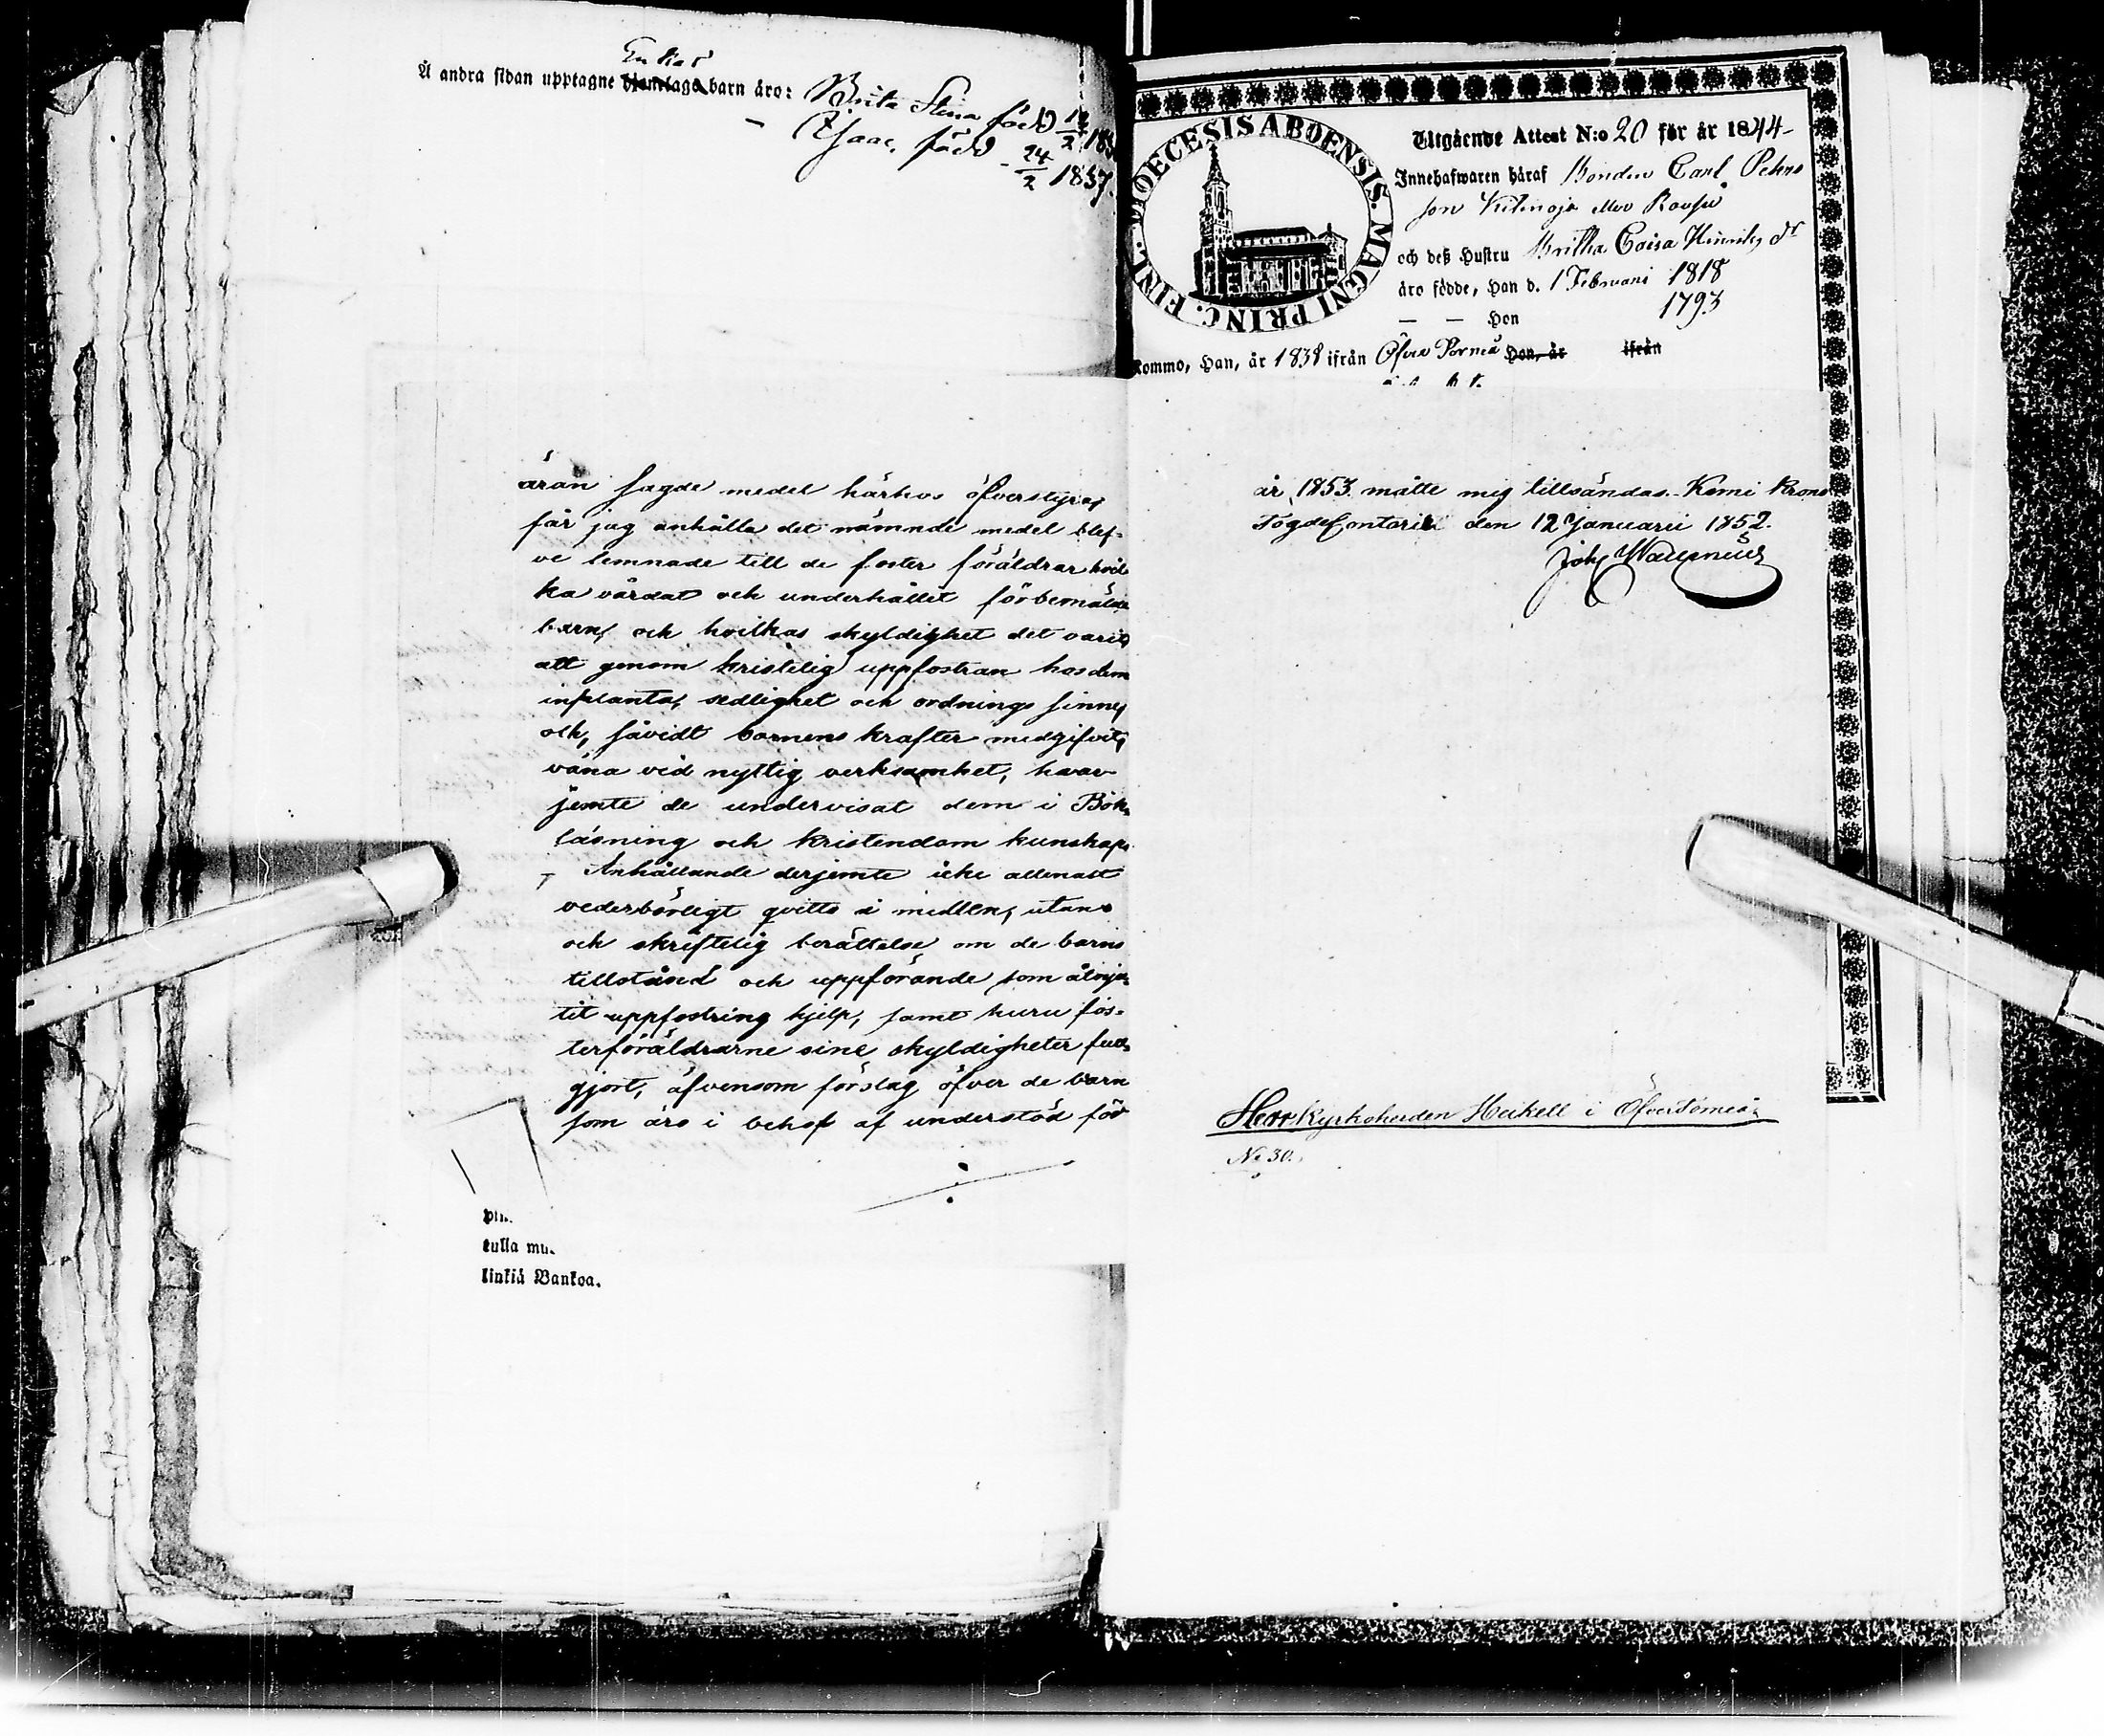 Å andra sidan upptagne barn äro: Brita Stina född
Isaac, född 24/2 1837.
äran sagde medel härhos öfverstyra,
får jag anhålla det nämnde medel blef-
ve lemnade till de foster föräldrar hvil-
ka vårdat och underhållit förbemälde
barn, och hvilkas skyldighet det varit
att genom kristelig uppfostran hos dem
inplanta, sedlighet och ordnings sinne,
och, såvidt barnens krafter medgifvit,
väna vid nyttig verksamhet, hvar-
jemte de undervisat dem i Bok-
läsning och Kristendom kunskap.
Anhållande derjemte icke allenast
vederbörligt qvitto å medlen, utan
och skriftelig berättelse om de barns
tillstånd och uppförande som åtnju-
tit uppfostring hjelp, samt huru fos-
terföräldrarne sine skyldigheter full-
gjort, äfvensom förslag öfver de barn
som äro i behof af understöd för
tulla mu.
linkiä Bankoa.
DIOECESIS ABOENSIS. MAGNI PRINC. FINL.
Utgående Attest N:o 20 för år 1844
Innehafwaren häraf Bonden Carl Pehrs
son eller
och deß Hustru Britha Caisa Hinriks dr
äro födde, Han d. 1 Februari 1818
— — Hon 1793
Kommo, Han, år 1838 ifrån Öfver Torneå Hon, år ifrån
år 1853 måtte mig tillsändas. Kemi Krono
Fogde Contor den 12 Januarii 1852.
Joh Wallenius
Herr Kyrkoherden Heikell i Öfvertorneå
No 30.